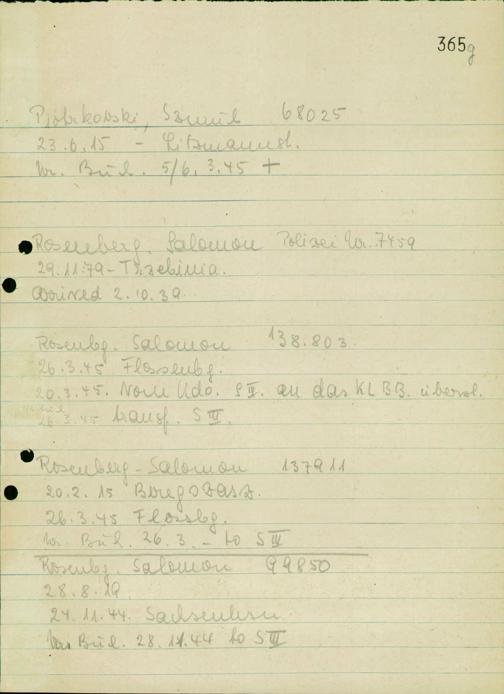 365g
Piotrkowski, Szmul 68025
23.6.15 - Litzmannst.
Nr. Buch. 5/6. 3.45 +
Rosenberg, Salomon Polizei Nr. 7459
29.11.79 - Trzebinia.
Arrived 2.10.39.
Rosenbg. Salomon 138.803.
26.3.45 Flossenbg.
20.3.45. Vom Kdo. S III. an das KL BB. überst.
26.3.45 transf. S III.
Rosenberg - Salomon 137911
20.2.15 Beregszasz.
26.3.45 Flossbg.
Nr. Buch. 26.3. - to S III
Rosenbg. Salomon 99850
28.8.19.
24.11.44. Sachsenhsn.
Buch. 28.11.44 to S III